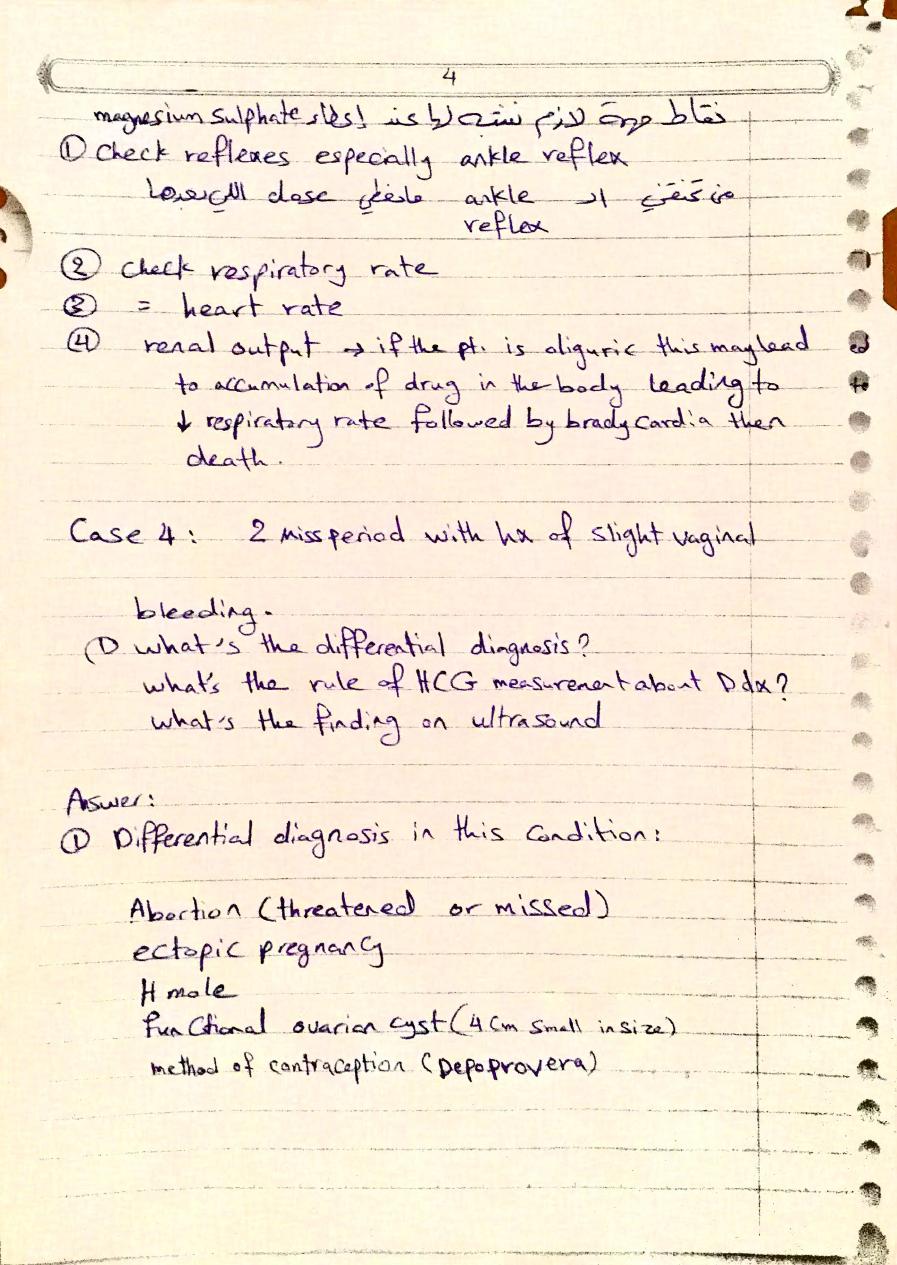 4
نقاط مهمة لازم ننتبه لها عند إعطاء magnesium sulphate
① Check reflexes especially ankle reflex
من تختفي ال ankle مانعطي اللي بعدها
reflex
② check respiratory rate
③ = heart rate
④ renal output → if the pt. is oliguric this may lead
to accumulation of drug in the body leading to
↓ respiratory rate followed by bradycardia then
death.
Case 4: 2 miss period with hx of slight vaginal
bleeding.
① what's the differential diagnosis?
what's the rule of HCG measurement about D dx?
what's the finding on ultrasound
Answer:
① Differential diagnosis in this Condition:
Abortion (threatened or missed)
ectopic pregnancy
H mole
functional ovarian cyst (4 Cm small in size)
method of contraception (Depoprovera)